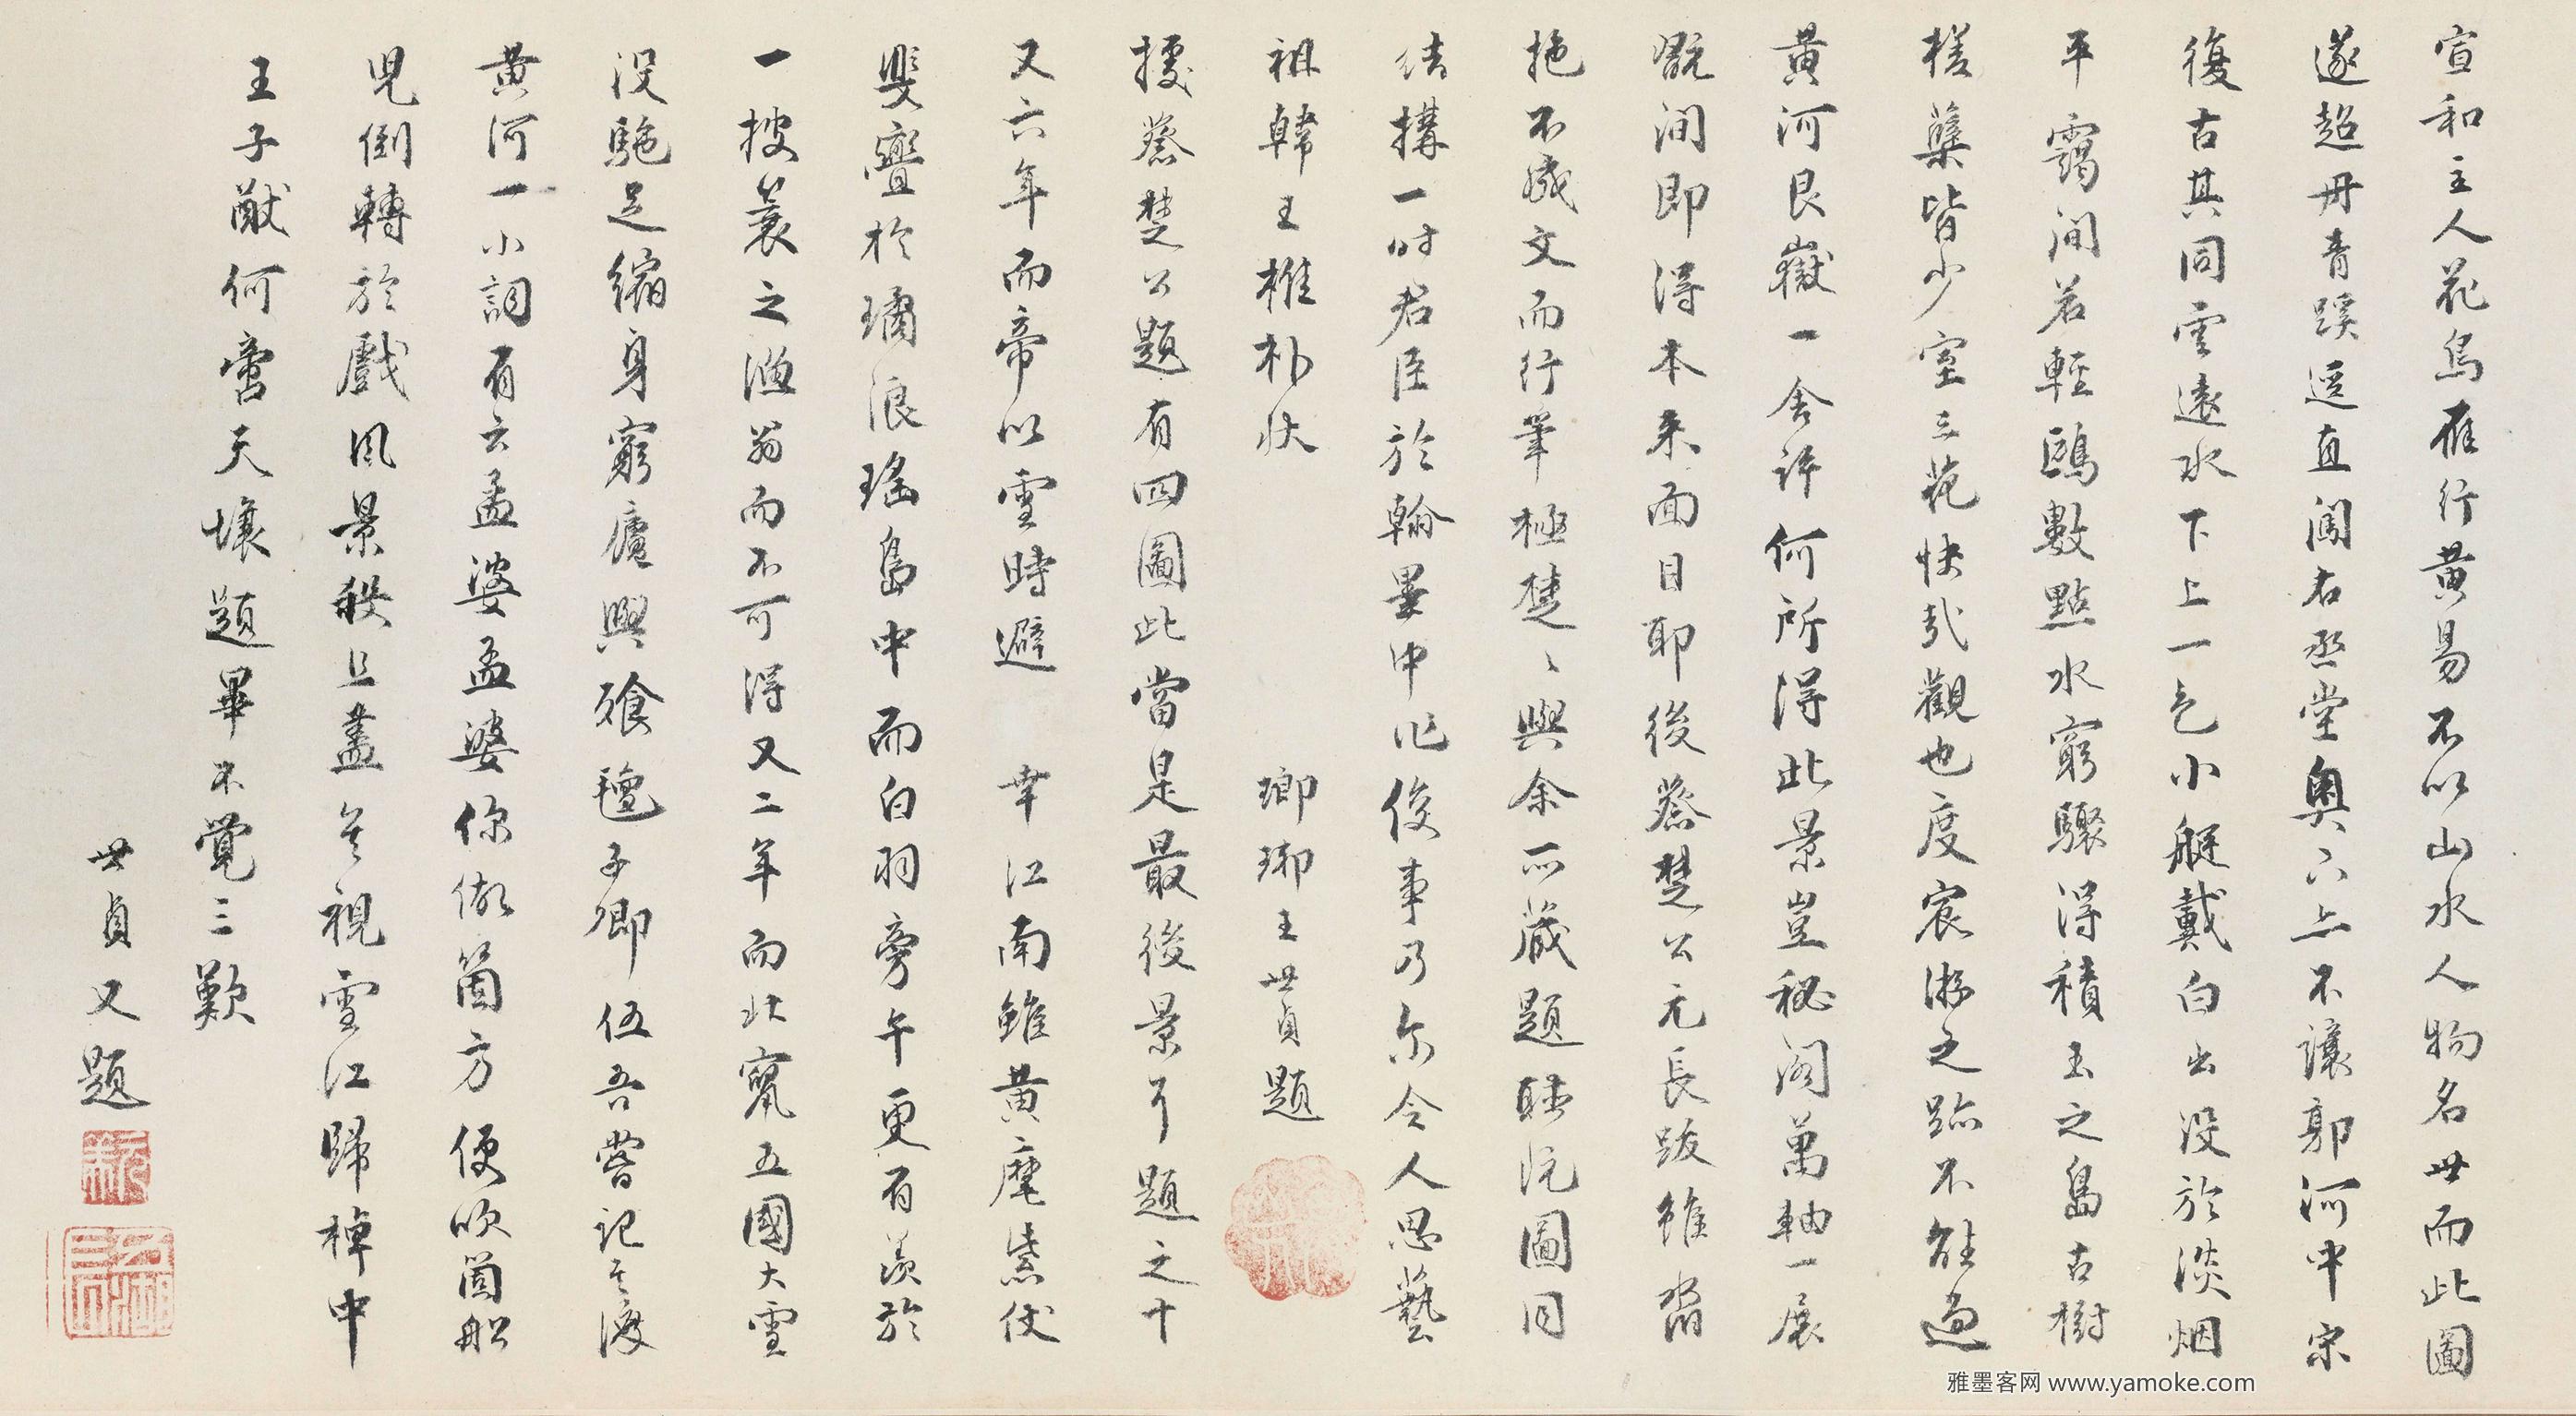 宣和主人花鳥雁行黃易不以山水人物名世而此圖
遂超丹青蹊逕直闖右丞堂奧下亦不讓郭河中宋
復古其同雲遠水下上一色小艇戴白出沒於淡烟
平靄間若輕鷗數點水窮驟得積玉之島古樹
槎蘖皆少室三花快哉觀也度宸游之跡不能過
黃河艮嶽一舍許何所得此景豈秘閣萬軸一展
翫間即得本來面目耶後蔡楚公元長跋雖
拖不成文而行筆極楚楚與余所藏題聽阮圖同
結構一時君臣於翰墨中作俊事乃尔令人思藝
祖韓王椎朴狀
瑯琊王世貞題
據蔡楚公題有四圖此當是最後景耳題之十
又六年而帝以雪時避 幸江南雖黃麾紫仗
斐亹於璚浪瑤島中而白羽旁午更有羨於
一披蓑之漁翁而不可得又二年而北竄五國大雪
沒駝足縮身窮廬與飱氊子卿伍吾嘗記其渡
黃河一小詞有云孟婆孟婆你做箇方便吹箇船
兒倒轉於戲風景殺且盡矣視雪江歸棹中
王子猷何啻天壤題畢不覺三歎
世貞又題
雅墨客网 www.yamoke.com